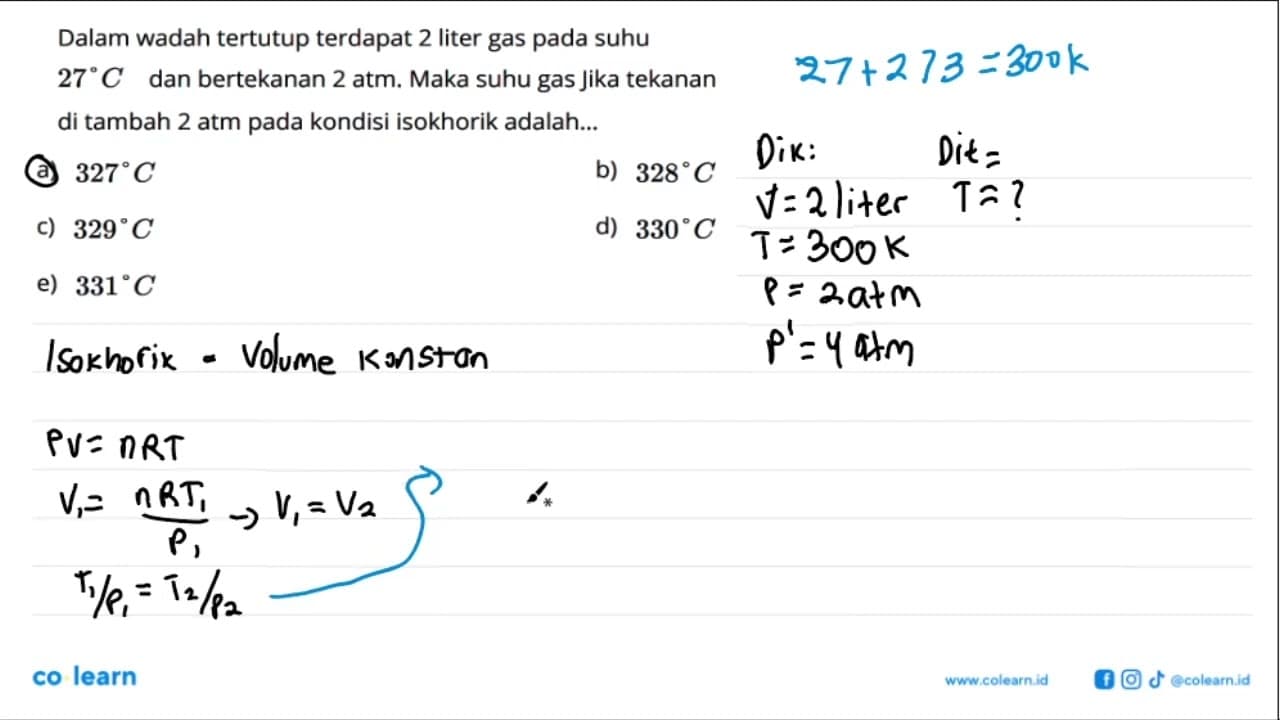 Dalam wadah tertutup terdapat 2 liter gas pada suhu
27°C dan bertekanan 2 atm. Maka suhu gas Jika tekanan
di tambah 2 atm pada kondisi isokhorik adalah...
a) 327°C
b) 328°C
c) 329°C
d) 330°C
e) 331°C
27+273=300k
Dik:
V=2 liter
T=300K
P=2atm
P'=4 atm
Dit=
T=?
Isokhorik - Volume Konstan
PV=nRT
V₁=nRT₁/P₁→V₁=V₂
T₁/P₁=T₂/P₂
co learn
www.colearn.id
@colearn.id